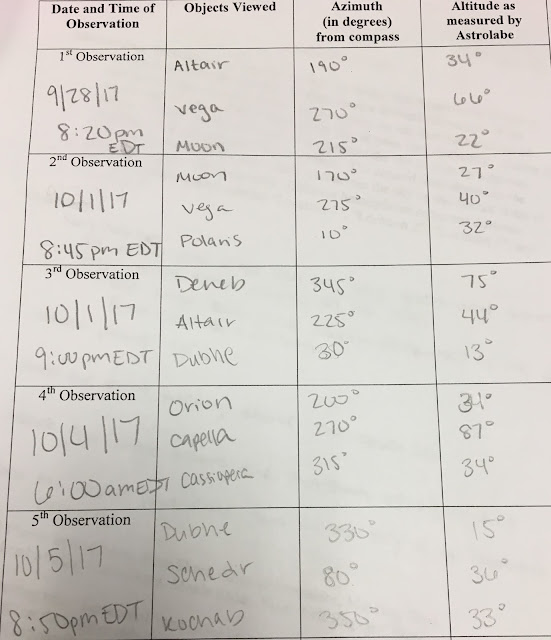 Date and Time of Observation Objects Viewed Azimuth (in degrees) from compass Altitude as measured by Astrolabe
1st Observation Altair 190° 34°
9/28/17 Vega 270° 66°
8:20pm EDT Moon 215° 22°
2nd Observation Moon 170° 27°
10/1/17 Vega 275° 40°
8:45pm EDT Polaris 10° 32°
3rd Observation Deneb 345° 75°
10/1/17 Altair 225° 44°
9:00pm EDT Dubhe 30° 13°
4th Observation Orion 200° 34°
10/4/17 Capella 270° 87°
6:00am EDT Cassiopera 315° 34°
5th Observation Dubhe 330° 15°
10/5/17 Schedr 80° 36°
8:50pm EDT Kochab 350° 33°